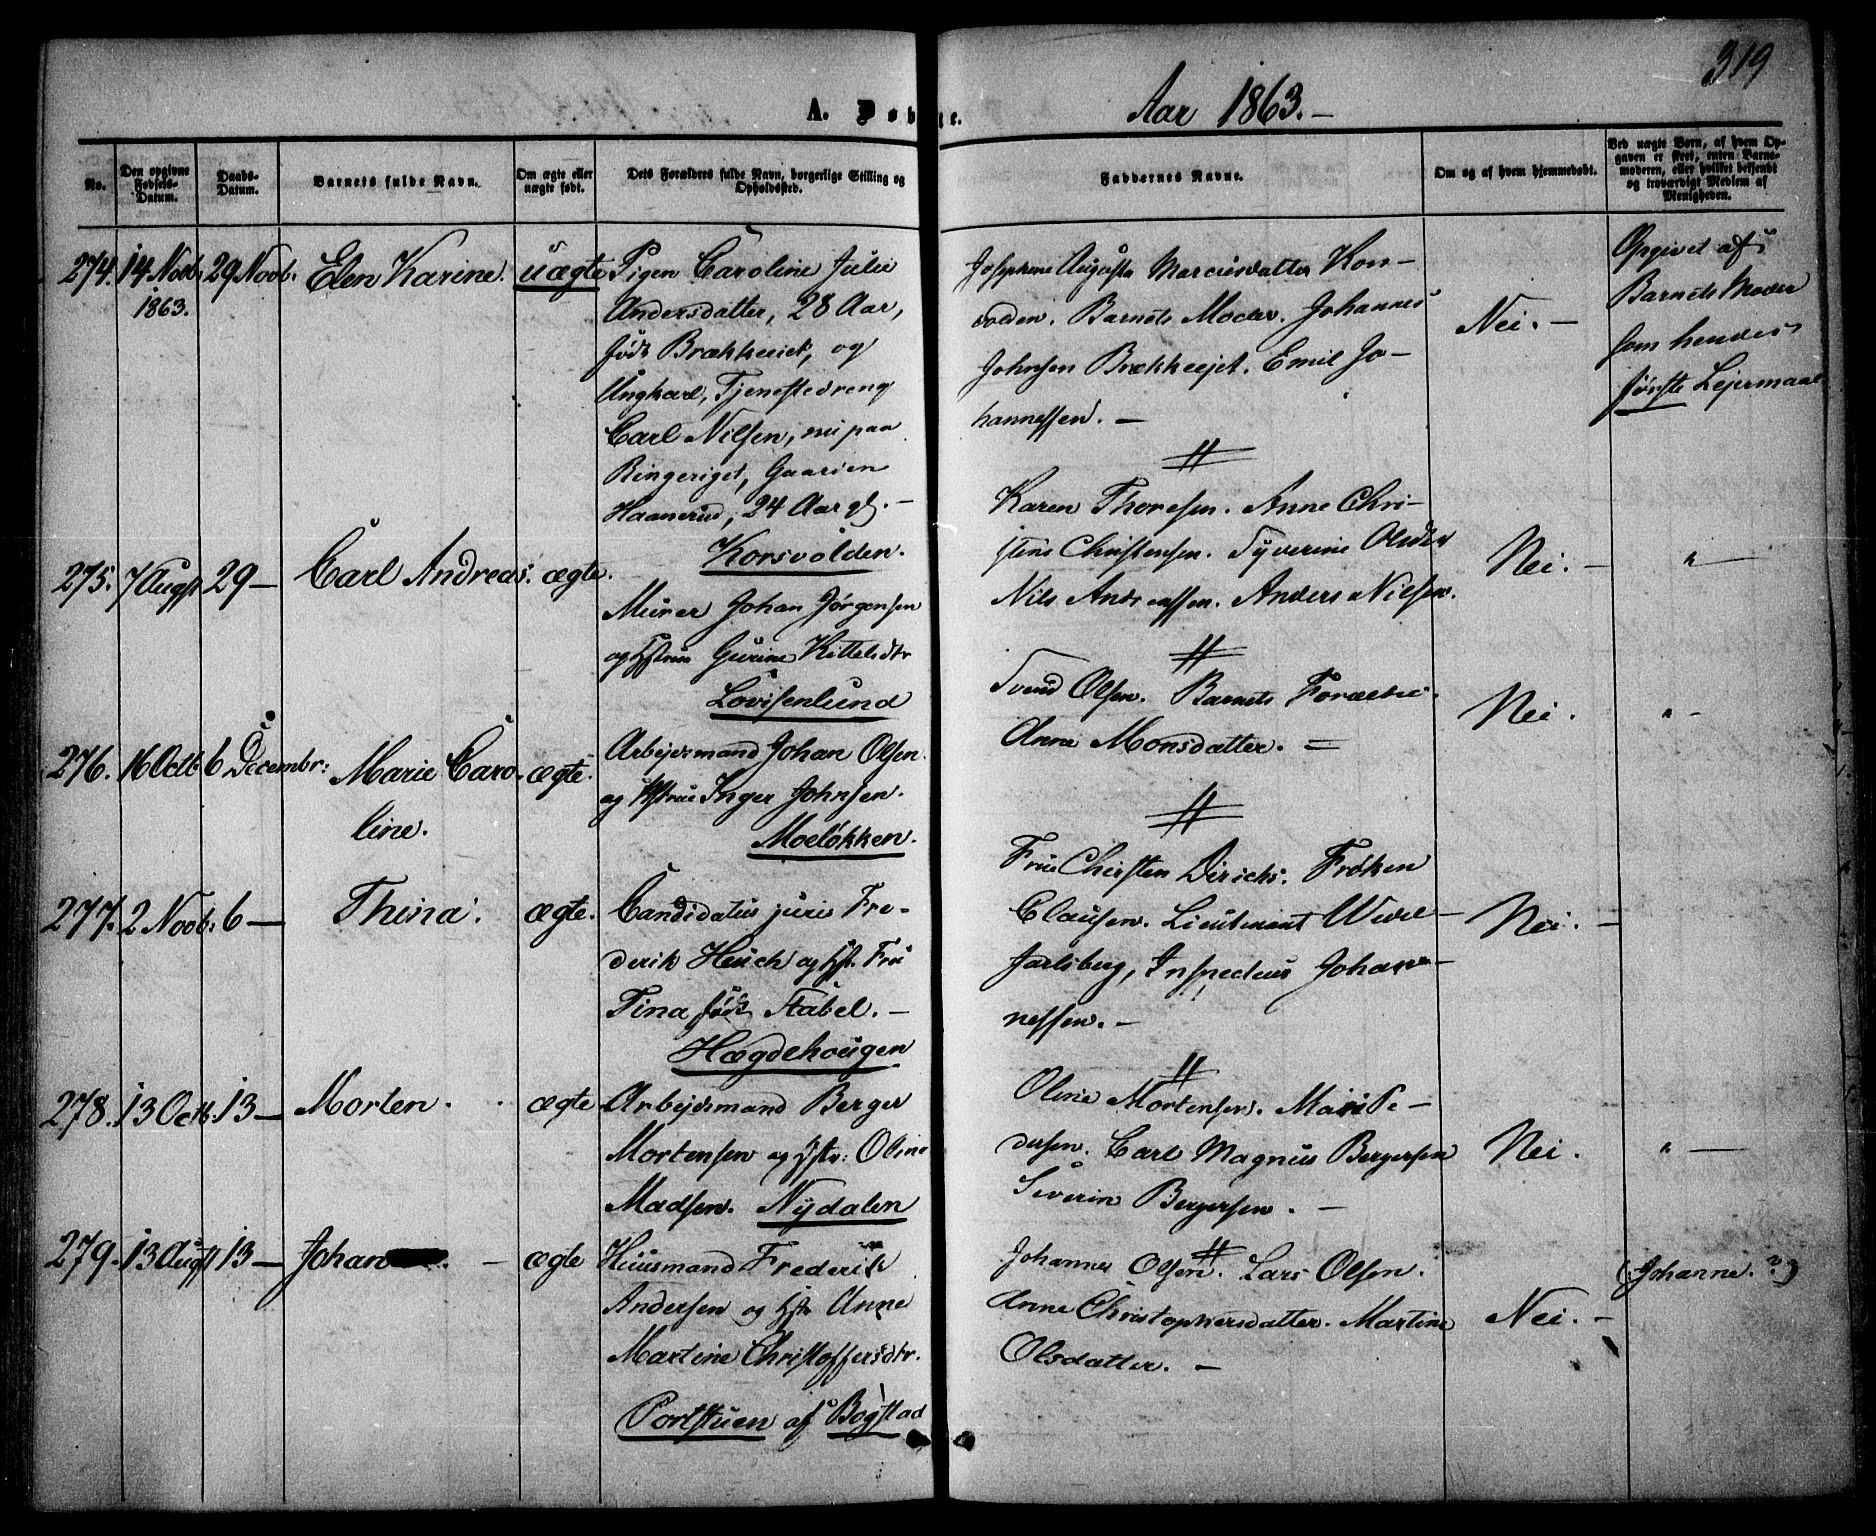 319
A. Døbte.
Aar 1863.-
No.
Den opgivne Fødsels-Datum.
Daabs-Datum.
Barnets fulde Navn.
Om ægte eller uægte født.
Dets Forældres fulde Navn, borgerlige Stilling og Opholdssted.
Faddernes Navne.
Om og af hvem hjemmedøbt.
Ved uægte Børn, af hvem Opgaven er skeet, enten Barnemoderen, eller hvilket bekjendt og troværdigt Medlem af Menigheden.
274. 14 Novb: 29 Novb: Elen Karine. uægte
1863.
Pigen Caroline Julie
Andersdatter, 28 Aar,
født Brækkeeiet, og
Ungkarl, Tjenestedreng
Carl Nilsen, nu paa
Ringeriget, Gaarden
Haanerud, 24 Aar gl. -
Korsvolden.
Josephine Augusta Marciusdatter Kors-
volden. Barnets Moder. Johannes
Johnsen Brækkeejet. Emil Jo-
hannessen. -
Nei. -
Opgivet af
Barnets Moder
som hendes
første Lejermaal
275. 7 Augst 29 - Carl Andreas. ægte.
Murer Johan Jørgensen
og Hstru Gurine Kittelsdtr
Lovisenlund
Karen Thoresen. Anne Chri-
stine Christensen. Syverine Olsdtr
Nils Andreassen. Anders Nilsen.
Nei. -
" -
276. 16 Octb: 6 Decembr: Marie Caro- ægte.
line.
Arbejdsmand Johan Olsen
og Hstrue Inger Johnsen.
Moeløkken.
Svend Olsen. Barnets Forældre.
Anne Monsdatter. =
Nei.
" -
277. 2 Novb: 6 - Thina. ægte.
Candidatus juris Fre-
derik Heuch og Hst. Fru
Tina født Stabel. -
Hægdehougen
Frue Chirsten Dirichs. Frøken
Clausen. Lieutenant Wedel-
Jarlsberg, Inspecteur Johan-
nessen. -
Nei. -
278. 13 Octb. 13 - Morten. ægte
Arbejdsmand Berger
Mortensen og Hstr: Oline
Madsen. Nydalen
Oline Mortensen. Mari Pe-
dersen. Carl Magnus Bergersen
Severin Bergersen. -
Nei.
" -
279. 13 Augst 13 - Johan . - ægte
Huusmand Frederik
Andersen og Hstr Anne
Martine Christoffersdtr.
Portstuen af Bogstad
Johannes Olsen. Lars Olsen.
Anne Christophersdatter. Martine
Olsdatter. -
Nei. -
(: Johanne. ? :)